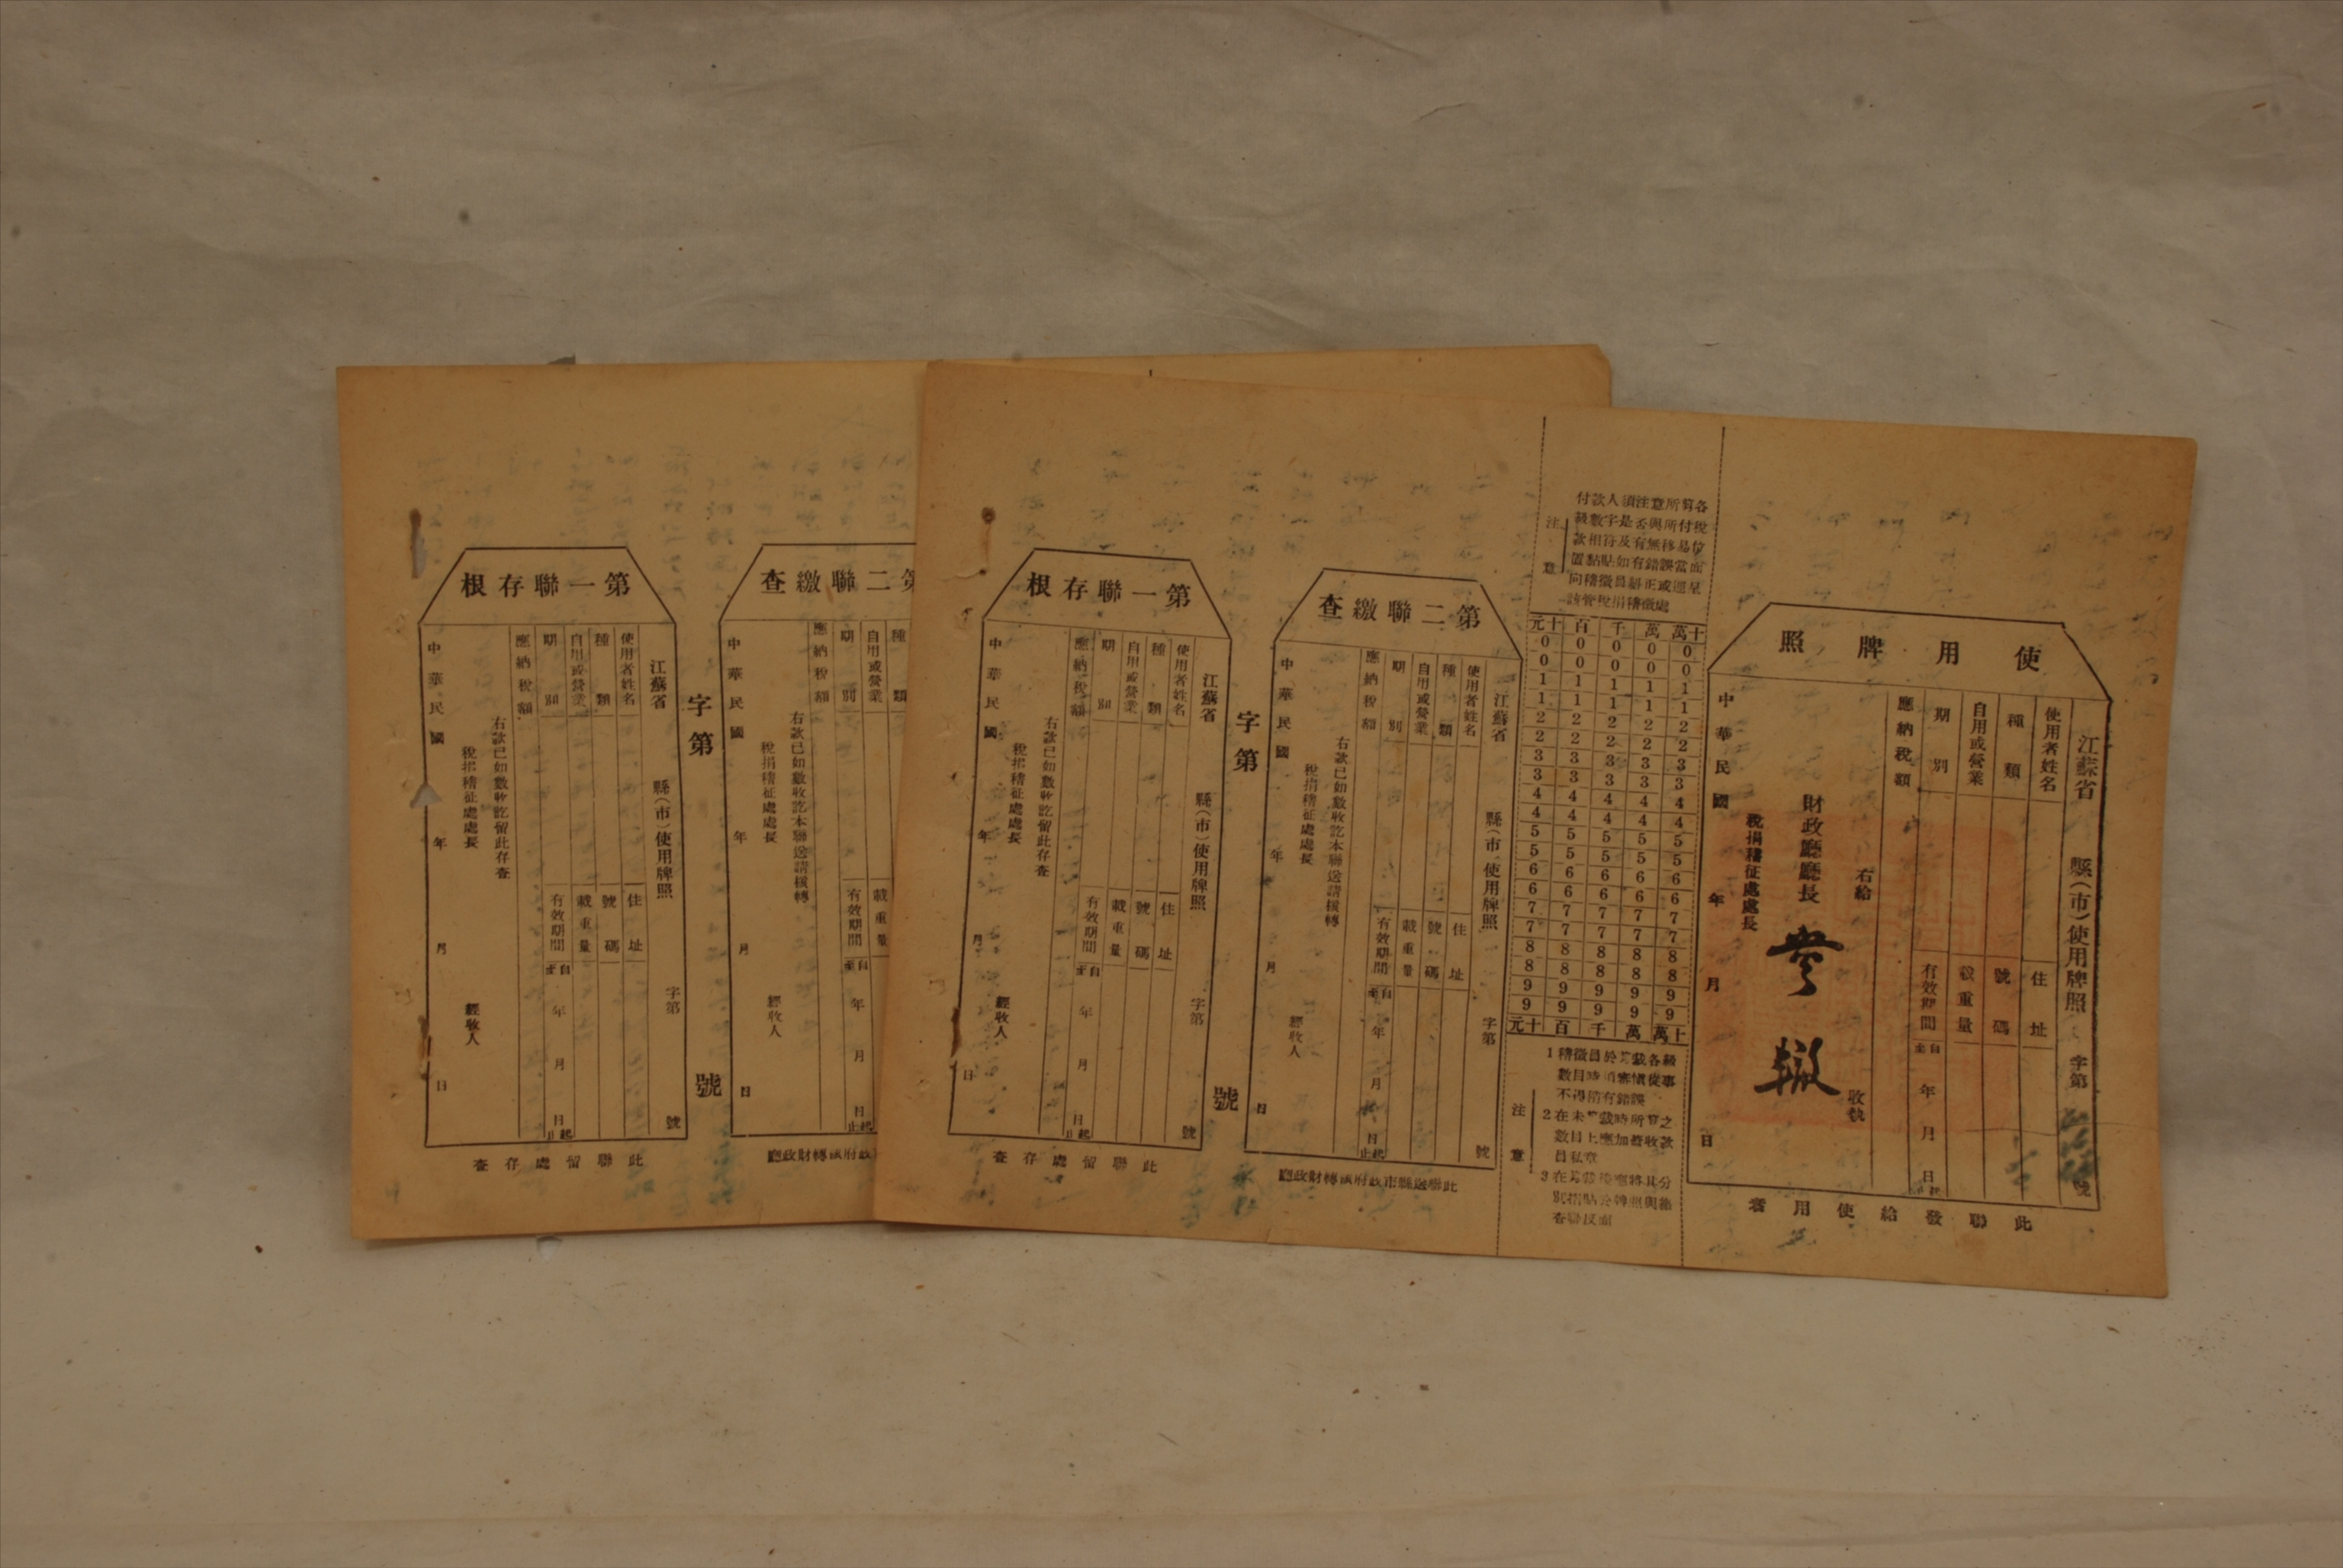 使用牌照
江蘇省 縣(市)使用牌照 字第 號
使用者姓名 住址
種類 號碼
自用或營業 載重量
期別 有效期間 自至 年 月 日 起止
應納稅額
右給 收執
財政廳廳長
稅捐稽征處處長
中華民國 年 月 日
此聯發給使用者
注意
付款人須注意所剪各
級數字是否與所付稅
款相符及有無移易位
置黏貼如有錯誤當面
向稽徵員糾正或逕呈
該管稅捐稽徵處
十萬 萬 千 百 十元
0 0 0 0 0
0 0 0 0 0
1 1 1 1 1
1 1 1 1 1
2 2 2 2 2
2 2 2 2 2
3 3 3 3 3
3 3 3 3 3
4 4 4 4 4
4 4 4 4 4
5 5 5 5 5
5 5 5 5 5
6 6 6 6 6
6 6 6 6 6
7 7 7 7 7
7 7 7 7 7
8 8 8 8 8
8 8 8 8 8
9 9 9 9 9
9 9 9 9 9
十萬 萬 千 百 十元
注意
1 稽徵員於 截各級
數目時 審慎從事
不得稍有錯誤
2 在未 截時所算之
數目上應加蓋收款
員私章
3 在 截後應將其分
別 貼於牌照與繳
查聯反面
第二聯繳查
江蘇省 縣(市)使用牌照 字第 號
使用者姓名 住址
種類 號碼
自用或營業 載重量
期別 有效期間 自至 年 月 日 起止
應納稅額
右款已如數收訖本聯送請核轉
稅捐稽征處處長 經收人
中華民國 年 月 日
此聯送縣市政府核轉財政廳
字第 號
第一聯存根
江蘇省 縣(市)使用牌照 字第 號
使用者姓名 住址
種類 號碼
自用或營業 載重量
期別 有效期間 自至 年 月 日 起止
應納稅額
右款已如數收訖留此存查
稅捐稽征處處長 經收人
中華民國 年 月 日
此聯留處存查
第二聯繳查
種類
自用或營業 載重量
期別 有效期間 自至 年 月 日 起止
應納稅額
右款已如數收訖本聯送請核轉
稅捐稽征處處長 經收人
中華民國 年 月 日
政府核轉財政廳
字第 號
第一聯存根
江蘇省 縣(市)使用牌照 字第 號
使用者姓名 住址
種類 號碼
自用或營業 載重量
期別 有效期間 自至 年 月 日 起止
應納稅額
右款已如數收訖留此存查
稅捐稽征處處長 經收人
中華民國 年 月 日
此聯留處存查